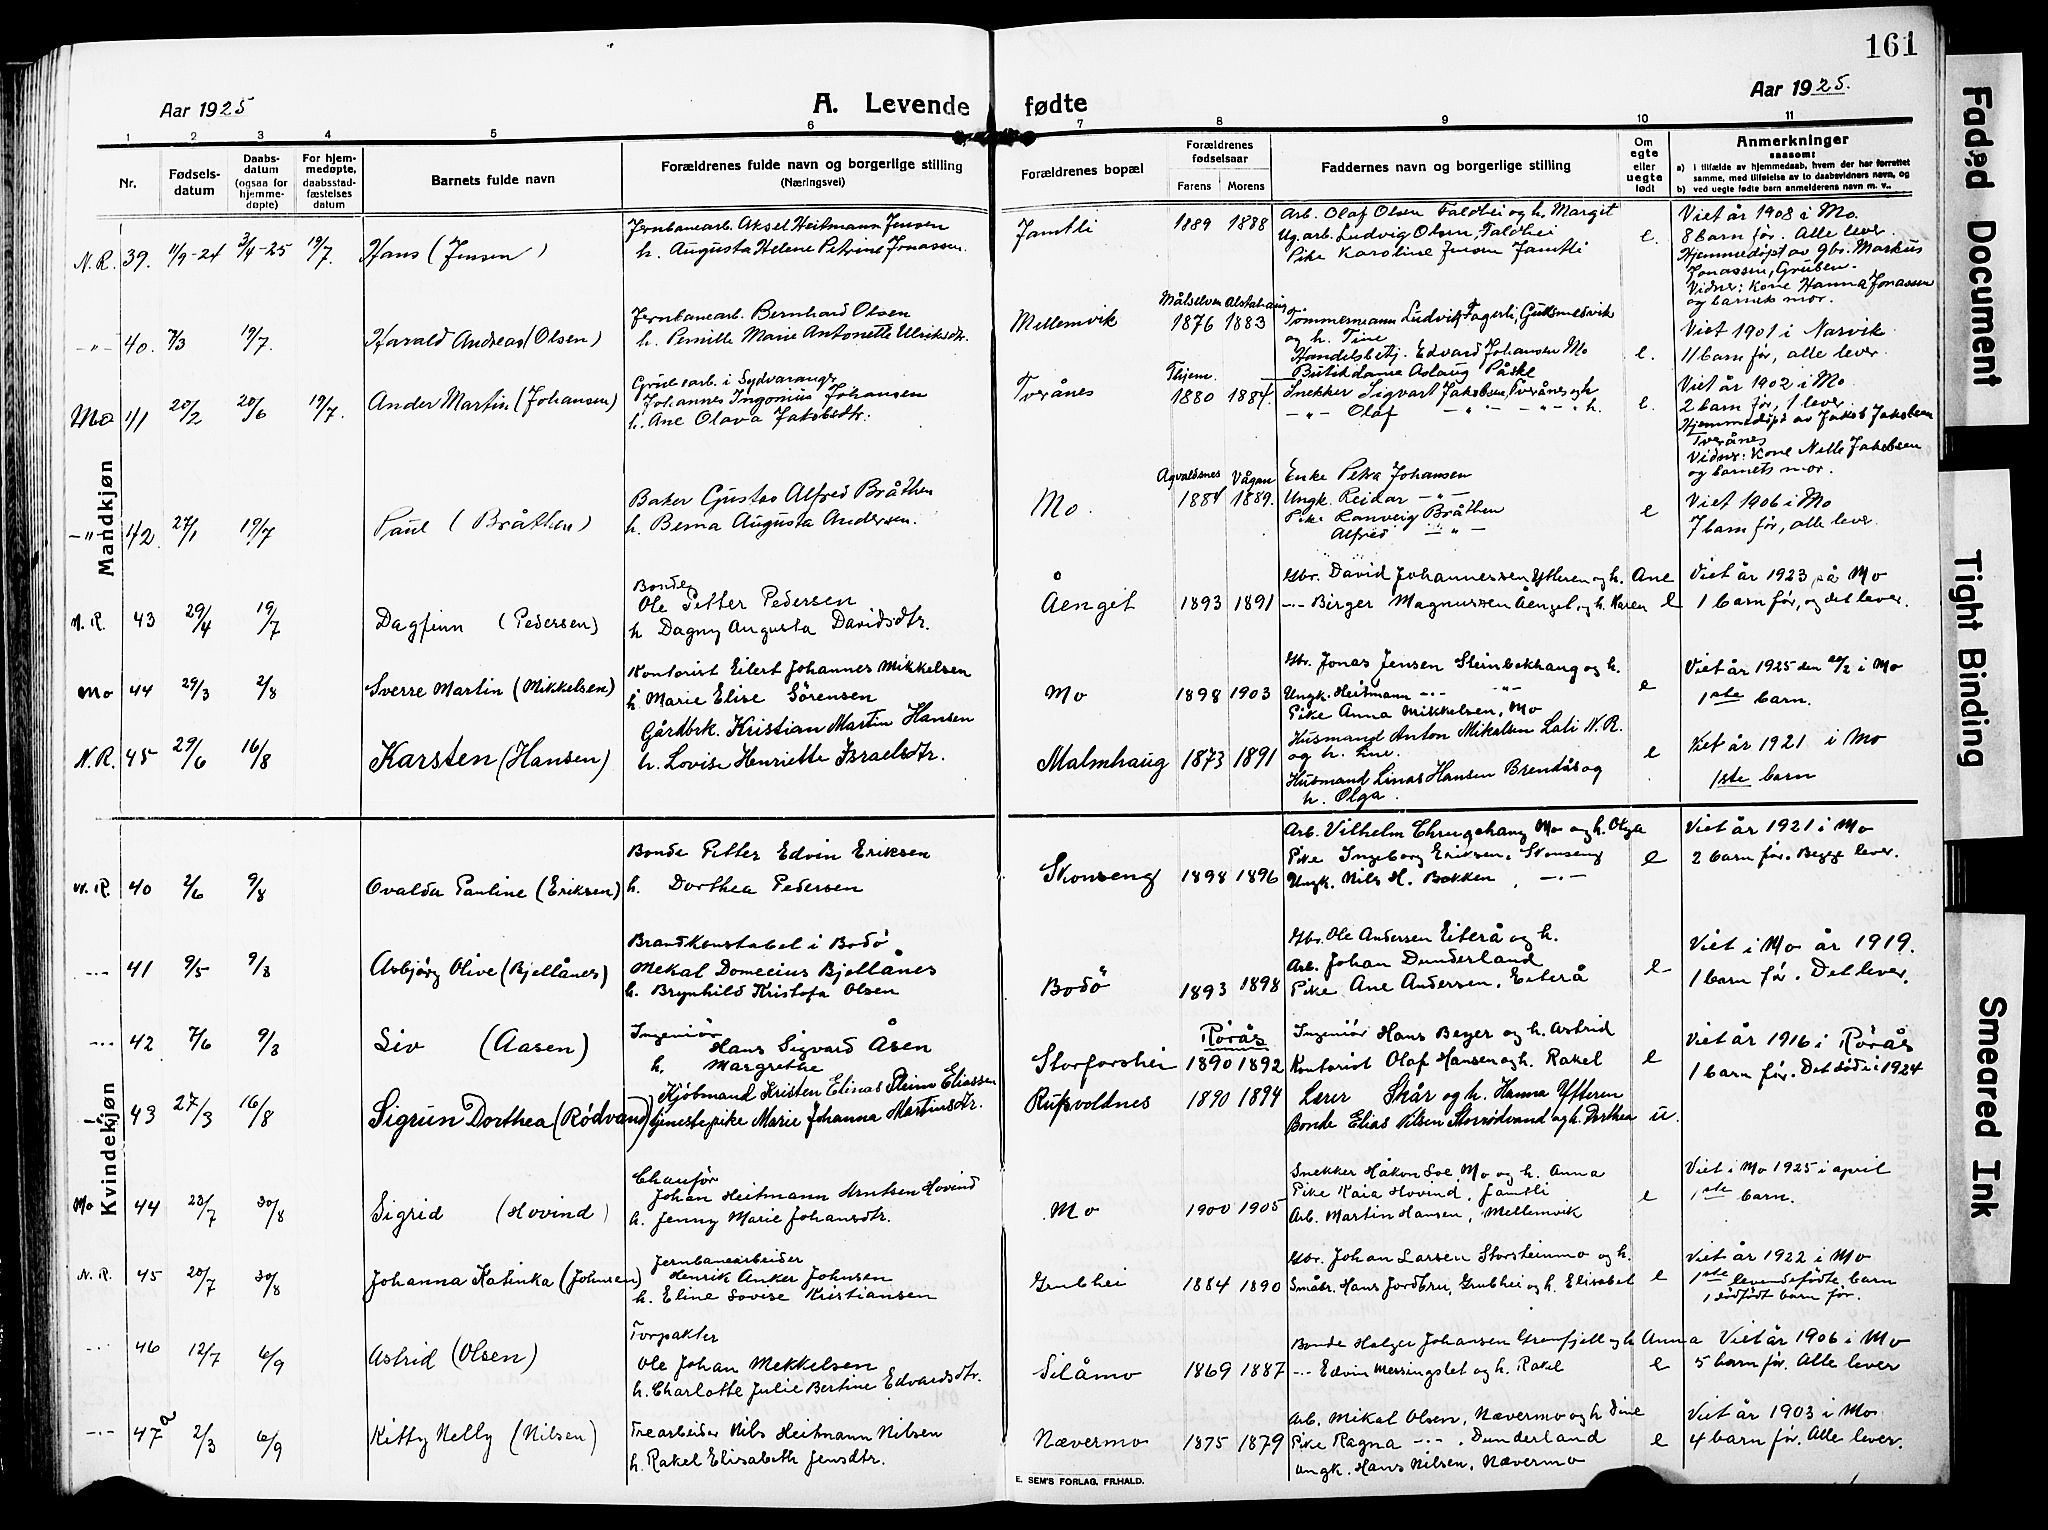 161
Aar 1925
A. Levende fødte
Aar 1925.
1 2 3 4 5 6 7 8 9 10 11
Nr.
Fødsels-
datum
Daabs-
datum
(ogsaa for
hjemme-
døpte)
For hjem-
medøpte,
daabsstad-
fæstelses
datum
Barnets fulde navn
Forældrenes fulde navn og borgerlige stilling
(Næringsvei)
Forældrenes bopæl
Forældrenes
fødselsaar
Farens Morens
Faddernes navn og borgerlige stilling
Om
egte
eller
uegte
født
Anmerkninger
saasom:
a) i tilfælde av hjemmedaab, hvem der har forrettet
samme, med tilføielse av to daabsvidners navn, og
b) ved uegte fødte barn anmelderens navn m. v..
Mandkjøn
N.R. 39. 11/9-24 3/4-25 19/7. Hans (Jensen)
Jernbanearb. Aksel Heitmann Jensen
h. Augusta Helene Petrine Jonassen.
Jamtli 1889 1888
Arb. Olaf Olsen Faldhei og h. Margit
Ug. arb. Ludvig Olsen, Faldhei
Pike Karoline Jensen Jamtli
e.
Viet år 1908 i Mo.
8 barn før. Alle lever.
Hjemmedøpt av gbr. Markus
Jonassen, Gruben.
Vidner: Kone Hanna Jonassen
og barnets mor.
-"- 40. 7/3 19/7. Harald Andreas (Olsen)
Jernbanearb. Bernhard Olsen
h. Pernille Marie Antonette Ulriksdtr.
Mellemvik
Målselven Alstahaug
1876 1883
Tømmermann Ludvik Fagerli, Gullsmedvik
og h. Tine
Handelsbetj. Edvard Johansen Mo
Butikdame Aslaug Påske
e.
Viet 1901 i Narvik
11 barn før, alle lever.
Mo 41 20/2 20/6 19/7. Ander Martin (Johansen)
Grubearb. i Sydvaranger
Johannes Ingomius Johansen
h. Ane Olava Jakobsdtr.
Tverånes
Hjem.
1880 1884.
Snekker Sigvart Jakobsen, Tverånes og h
-"- Olaf -"- -"- h.
e.
Viet år 1902 i Mo.
2 barn før, 1 lever.
Hjemmedøpt av Jakob Jakobsen
Tverånes
Vidner: Kone Nelle Jakobsen
og barnets mor.
-"- 42. 27/1 19/7 Paul (Bråthen)
Baker Gustav Alfred Bråthen
h. Berna Augusta Andersen.
Mo.
Agvaldsnes Vågan
1884 1889.
Enke Petra Johansen
Ungk. Reidar -"-
Pike Ranveig Bråthen
Alfred -"-
e
Viet 1906 i Mo
7 barn før, alle lever.
N.R. 43 29/4 19/7 Dagfinn (Pedersen)
Bonde
Ole Petter Pedersen
h Dagny Augusta Davidsdtr.
Åenget 1893 1891
Gbr. David Johannessen Ytteren og h. Ane
-"- Birger Magnussen Åenget, og h. Karen
e
Viet år 1923 på Mo
1 barn før, og det lever.
Mo 44 29/3 2/8 Sverre Martin (Mikkelsen)
Kontorist Eilert Johannes Mikkelsen
h Marie Elise Sørensen
Mo 1898 1903
Gbr. Jonas Jensen Steinbekkhaug og h.
Ungk. Heitmann -"- -"-
Pike Anna Mikkelsen, Mo
e
Viet år 1925 den 20/2 i Mo
1ste barn.
N.R. 45 29/6 16/8 Karsten (Hansen)
Gårdbrk. Kristian Martin Hansen
h. Lovise Henriette Israelsdtr.
Malmhaug 1873 1891
Husmand Anton Mikalsen Lati N.R.
og h. Line.
Husmand Linas Hansen Brendås og
h. Olga.
e
Viet år 1921 i Mo
1ste barn
Kvindekjøn
N.R. 40 2/6 9/8 Ovalda Pauline (Eriksen)
Bonde Petter Edvin Eriksen
h. Dorthea Pedersen
Skonseng 1898 1896
Arb. Vilhelm Mo og h. Olga
Pike Ingeborg Eriksen, Skonseng
Ungk. Nils H. Bakken, -"-
e
Viet år 1921 i Mo
2 barn før. Begge lever.
-"- 41 9/5 9/8 Asbjørg Olive (Bjellånes)
Brandkonstabel i Bodø
Mekal Domecius Bjellånes
h. Brynhild Kristofa Olsen
Bodö 1893 1898
Gbr. Ole Andersen Eiterå og h.
Arb. Johan Dunderland
Pike Ane Andersen, Eiterå
e
Viet i Mo år 1919.
1 barn før. Det lever.
-"- 42 7/6 9/8 Liv (Aasen)
Ingeniør
Hans Sigvard Åsen
h. Margrethe
Storforshei
Rørås
1890 1892
Ingeniør Hans Beyer og h. Astrid
Kontorist Olaf Hansen og h. Rakel
e
Viet år 1916 i Rørås
1 barn før. Det døde i 1924
-"- 43 27/3 16/8 Sigrun Dorthea (Rødvand)
Kjøbmand Kristen Elinas Stein Eliassen
tjenestepike Marie Johanna Martinsdtr.
Rufsvoldnes 1890 1894
Lærer Skår og h. Hanna Ytteren
Bonde Elias Nilsen Storrødvand og h. Dorthea
u.
Mo 44 23/7 30/8 Sigrid (Hovind)
Chaufør
Johan Heitmann Arntsen Hovind
h. Jenny Marie Johansdtr.
Mo 1900 1905
Snekker Håkon Soe, Mo og h. Anna
Pike Kaia Hovind, Jamtli
Arb. Martin Hansen, Mellemvik
e
Viet i Mo 1925 i april
1ste barn.
N.R. 45 20/7 30/8 Johanna Katinka (Johnsen)
Jernbanearbeider
Henrik Anker Johnsen
h. Eline Lovise Kristiansen
Grubhei 1884 1890
Gbr. Johan Larsen Storsteinmo og h.
Småbr. Hans Jordbru, Grubhei og h. Elisabet
e
Viet år 1922 i Mo
1ste levendefødte barn
1 dødfødt barn før.
-"- 46 12/7 6/9 Astrid (Olsen)
Forpakter
Ole Johan Mekkelsen
h. Charlotte Julie Bertine Edvardsdtr.
Silåmo 1869 1887
Bonde Holger Johansen Grønfjell og h Anna
-"- Edvin Messingslet og h. Rakel
e
Viet år 1906 i Mo
5 barn før. Alle lever
-"- 47a 2/3 6/9 Kitty Nelly (Nilsen)
Trearbeider Nils Heitmann Nilsen
h. Rakel Elisabeth Jensdtr.
Nævermo 1875 1879
Arb. Mikal Olsen, Nævermo og h Tine
Pike Ragna -"-, Dunderland
Ungk. Hans Nilsen, Nævermo
e
Viet år 1903 i Mo
4 barn før. Alle lever.
E. SEM'S FORLAG, FR.HALD.
Faded Document
Tight Binding
Smeared Ink